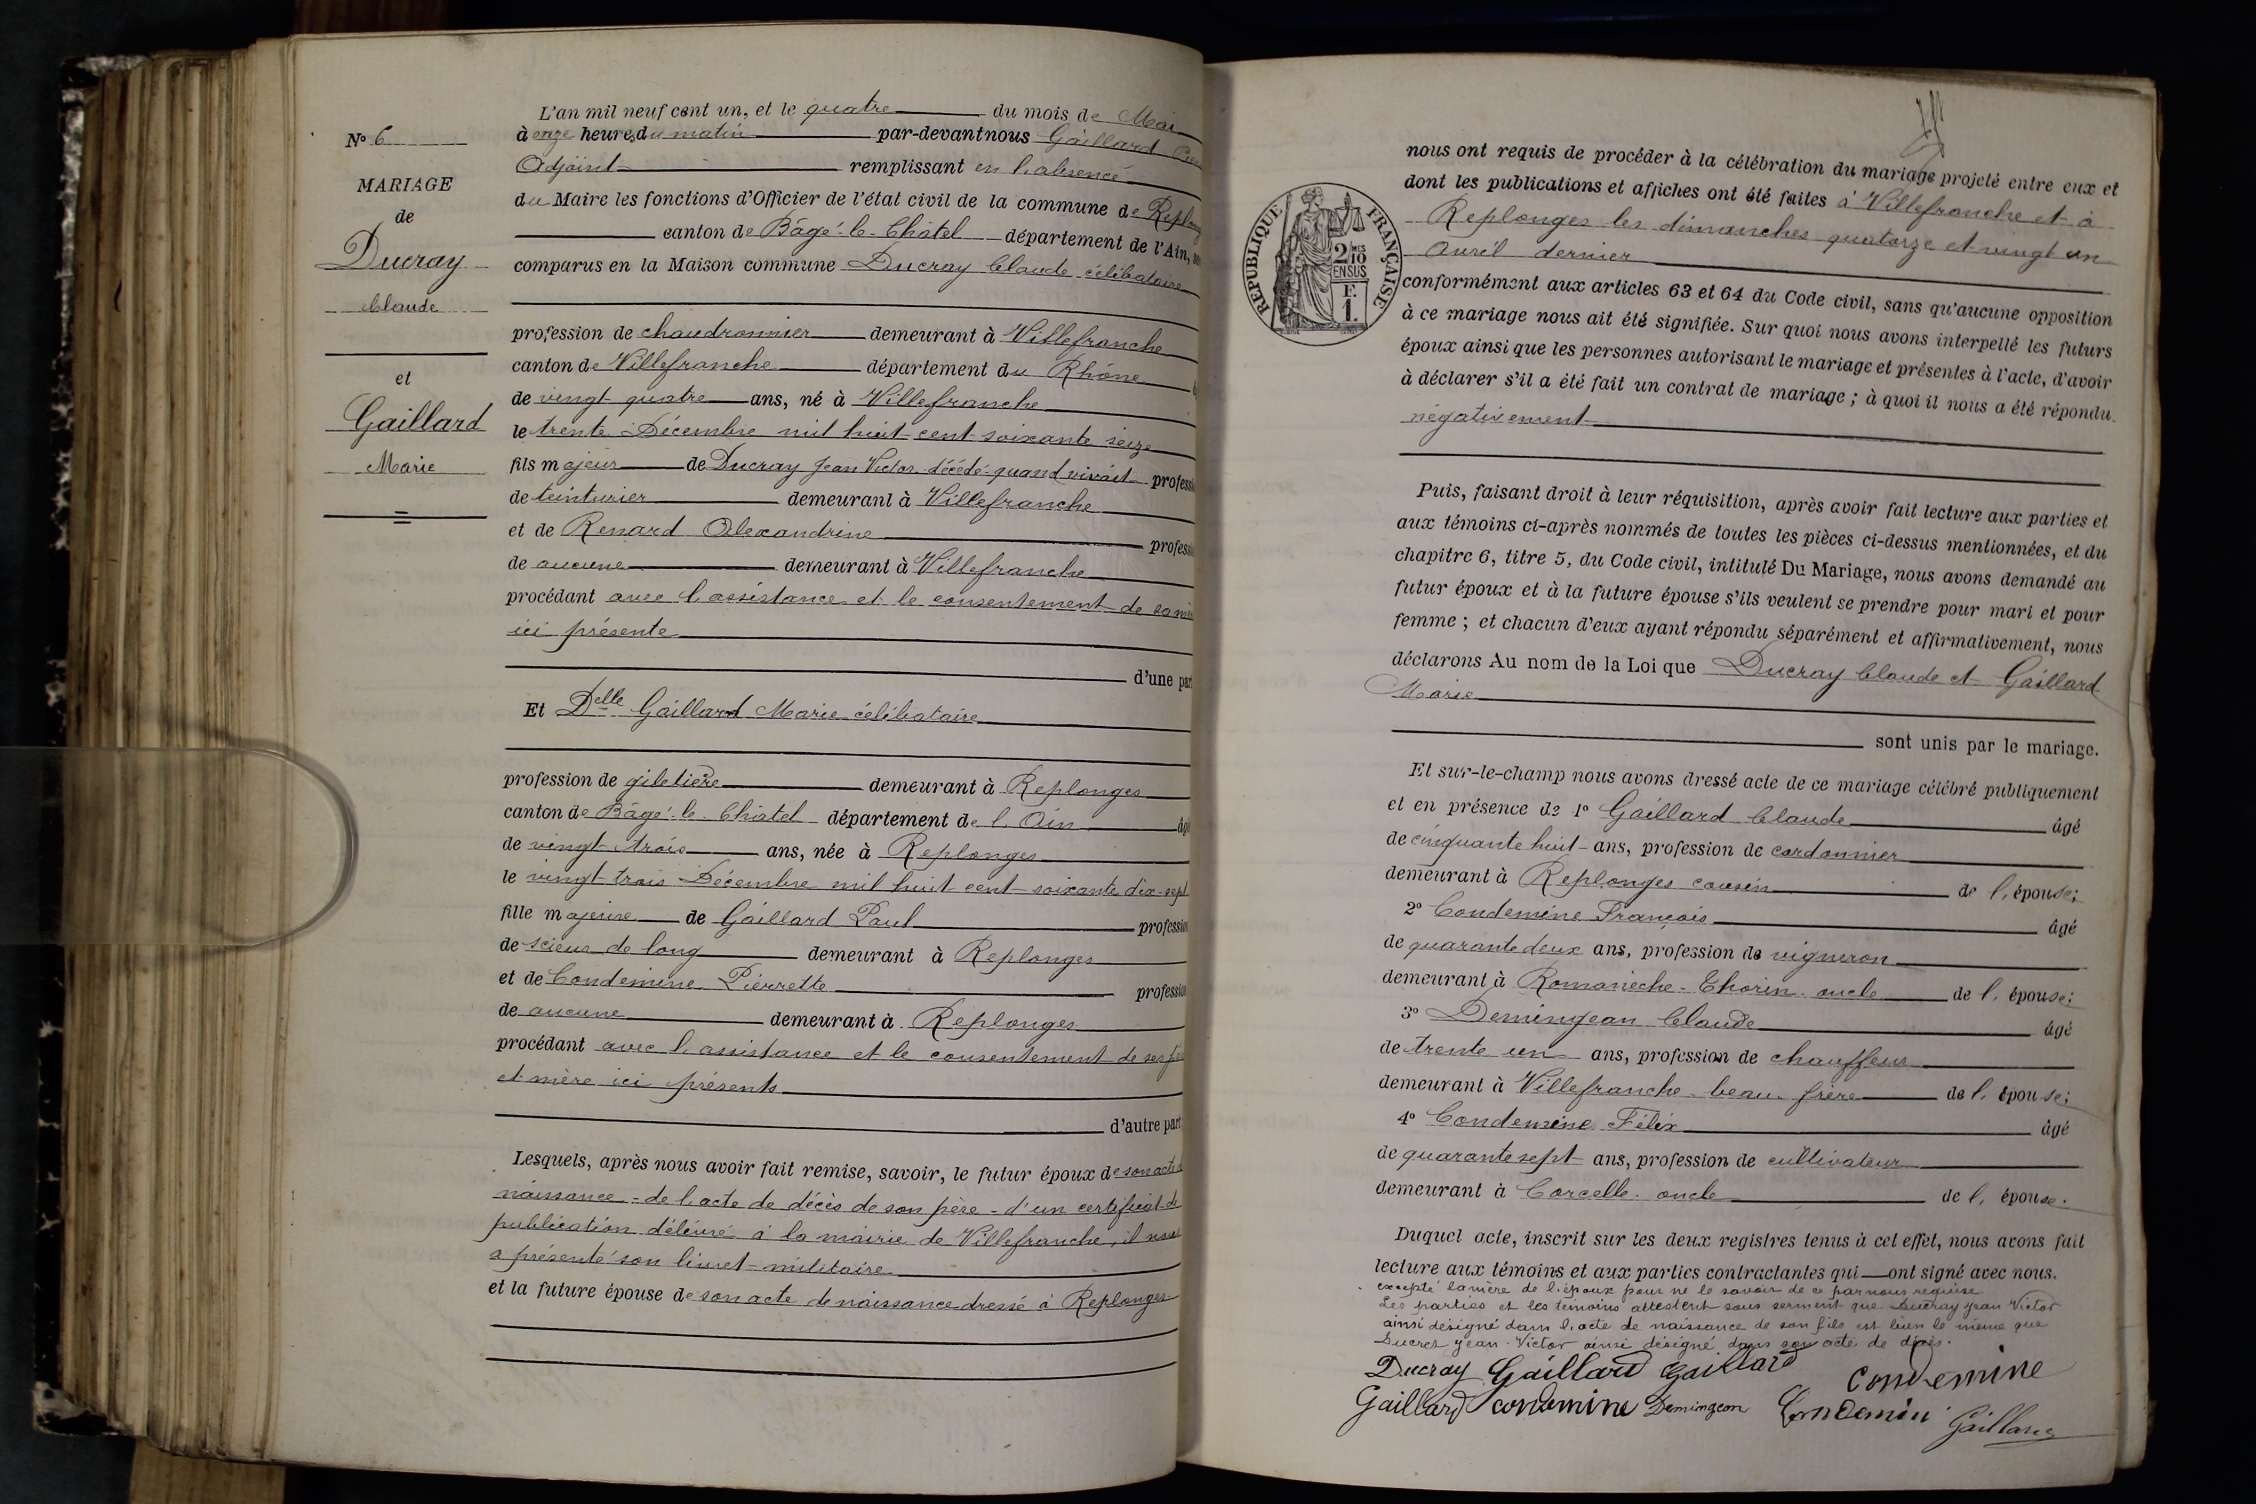 N° 6
MARIAGE
de
Ducray
Claude
et
Gaillard
Marie
L'an mil neuf cent un, et le quatre du mois de Mai
à onze heures du matin par-devant nous Gaillard
Adjoint remplissant en l'absence
du Maire les fonctions d'Officier de l'état civil de la commune de Replonges
canton de Bâgé-le-Châtel département de l'Ain,
comparus en la Maison commune Ducray Claude célibataire
profession de chaudronnier demeurant à Villefranche
canton de Villefranche département du Rhône
de vingt quatre ans, né à Villefranche
le trente Décembre mil huit cent soixante seize
fils majeur de Ducray Jean Victor décédé quand vivait profession
de teinturier demeurant à Villefranche
et de Renard Alexandrine profession
de aucune demeurant à Villefranche
procédant avec l'assistance et le consentement de sa mère
ici présente
d'une part
Et Delle Gaillard Marie célibataire
profession de giletière demeurant à Replonges
canton de Bâgé-le-Châtel département de l'Ain âgé
de vingt trois ans, née à Replonges
le vingt trois Décembre mil huit cent soixante dix-sept
fille majeure de Gaillard Paul profession
de scieur de long demeurant à Replonges
et de Condemine Pierrette profession
de aucune demeurant à Replonges
procédant avec l'assistance et le consentement de ses père
et mère ici présents
d'autre part
Lesquels, après nous avoir fait remise, savoir, le futur époux de son acte de
naissance - de l'acte de décès de son père - d'un certificat de
publication délivré à la mairie de Villefranche, il nous
a présenté son livret militaire
et la future épouse de son acte de naissance dressé à Replonges
nous ont requis de procéder à la célébration du mariage projeté entre eux et
dont les publications et affiches ont été faites à Villefranche et à
Replonges les dimanches quatorze et vingt un
Avril dernier
RÉPUBLIQUE FRANÇAISE
2 MES 10
EN SUS
F.
1.
conformément aux articles 63 et 64 du Code civil, sans qu'aucune opposition
à ce mariage nous ait été signifiée. Sur quoi nous avons interpellé les futurs
époux ainsi que les personnes autorisant le mariage et présentes à l'acte, d'avoir
à déclarer s'il a été fait un contrat de mariage ; à quoi il nous a été répondu
négativement
Puis, faisant droit à leur réquisition, après avoir fait lecture aux parties et
aux témoins ci-après nommés de toutes les pièces ci-dessus mentionnées, et du
chapitre 6, titre 5, du Code civil, intitulé Du Mariage, nous avons demandé au
futur époux et à la future épouse s'ils veulent se prendre pour mari et pour
femme ; et chacun d'eux ayant répondu séparément et affirmativement, nous
déclarons Au nom de la Loi que Ducray Claude et Gaillard
Marie
sont unis par le mariage.
Et sur-le-champ nous avons dressé acte de ce mariage célébré publiquement
et en présence de 1° Gaillard Claude âgé
de cinquante huit ans, profession de cordonnier
demeurant à Replonges cousin de l'épouse;
2° Condemine François âgé
de quarante deux ans, profession de vigneron
demeurant à Romanèche-Thorin oncle de l'épouse;
3° Demingean Claude âgé
de trente un ans, profession de chauffeur
demeurant à Villefranche beau-frère de l'épouse;
4° Condemine Félix âgé
de quarante sept ans, profession de cultivateur
demeurant à Corcelle oncle de l'épouse.
Duquel acte, inscrit sur les deux registres tenus à cet effet, nous avons fait
lecture aux témoins et aux parties contractantes qui ont signé avec nous.
excepté la mère de l'époux pour ne le savoir de ce par nous requise
Les parties et les témoins attestent sous serment que Ducray Jean Victor
ainsi désigné dans l'acte de naissance de son fils est bien le même que
Ducret Jean-Victor ainsi désigné dans son acte de décès.
Ducray Gaillard Gaillard Condemine
Gaillard Condemine Demingeon Condemin Gaillard